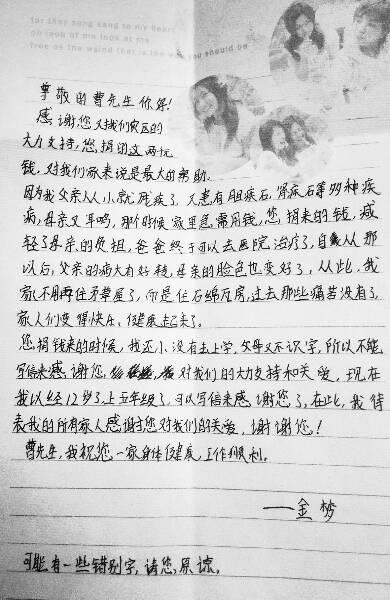 for they song sang to my heart
oh look at me look at me
free as the waind that is the way you should be
尊敬的曹先生你好!
感谢您对我们灾区的
大力支持,您捐的这两元
钱,对我们家来说是最大的帮助.
因为我父亲从小就残疾了,又患有胆疾石,肾疾石等多种疾
病,母亲又耳鸣,那个时候家里急需用钱,您捐来的钱,减
轻了母亲的负担,爸爸终于可以去医院治疗了,自从那
以后,父亲的病大有好转,母亲的脸色也变好了,从此,我
家不用再住矛草屋了,而是住石绵瓦房,过去那些痛苦没有了,
家人们变得快乐、健康起来了。
您捐钱来的时候,我还小没有去上学,父母又不识字,所以不能
写信来感谢您,对我们的大力支持和关爱,现在
我以经12岁了,上五年级了,可以写信来感谢您了,在此,我代
表我的所有家人感谢您对我们的关爱,谢谢您!
曹先生,我祝您一家身体健康,工作顺利。
——金梦
可能有一些错别字,请您,原谅。